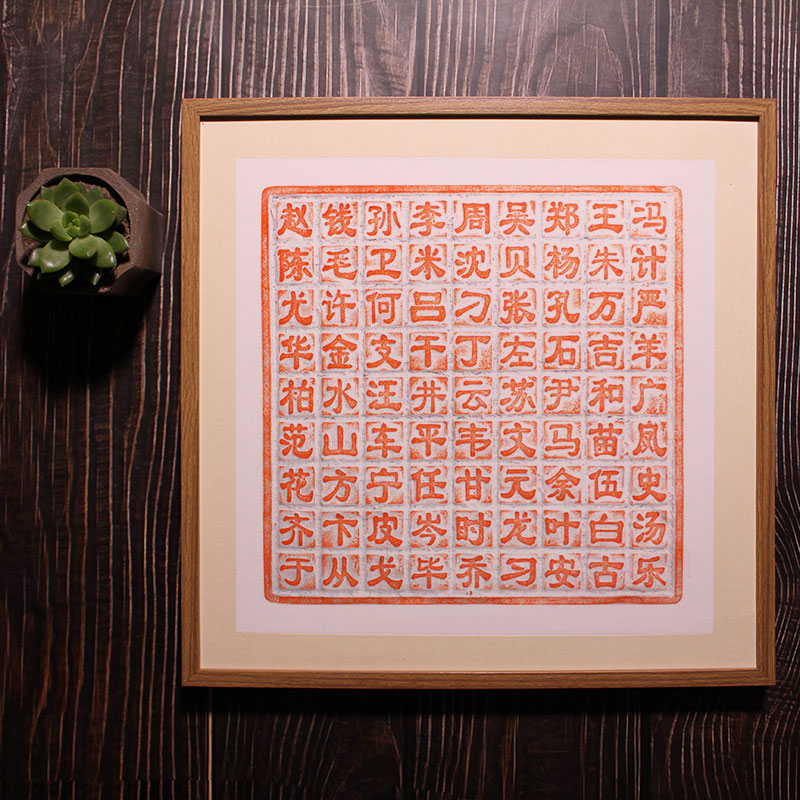 赵钱孙李周吴郑王冯
陈毛卫米沈贝杨朱计
尤许何吕刁张孔万严
华金支干丁左石吉羊
柏水汪井云苏尹和广
范山车平韦文马苗岚
花方宁任甘元余伍史
齐卞皮岑时龙叶白汤
于从戈毕乔习安古乐